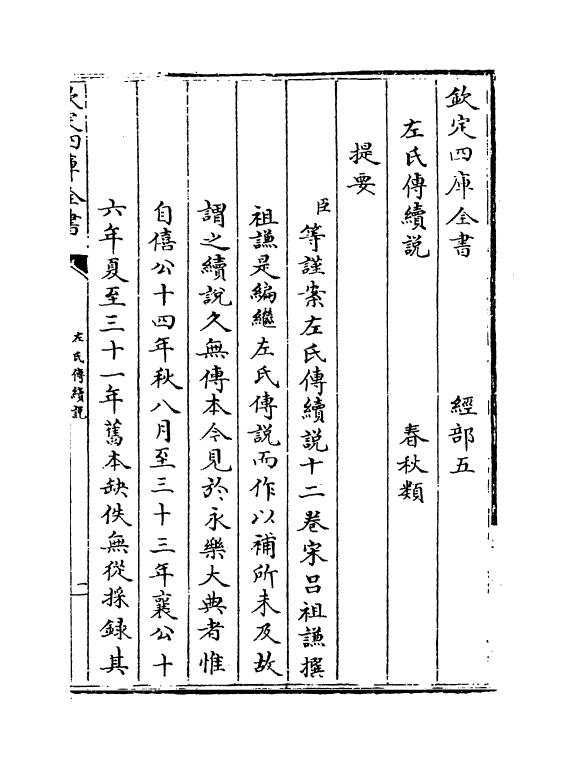 欽定四庫全書　　　　經部五
左氏傳續說　　　　春秋類
提要
臣等謹案左氏傳續說十二卷宋呂祖謙撰
祖謙是編繼左氏傳說而作以補所未及故
謂之續說久無傳本今見於永樂大典者惟
自僖公十四年秋八月至三十三年襄公十
六年夏至三十一年舊本缺佚無從採録其
欽定四庫全書
左氏傳續說